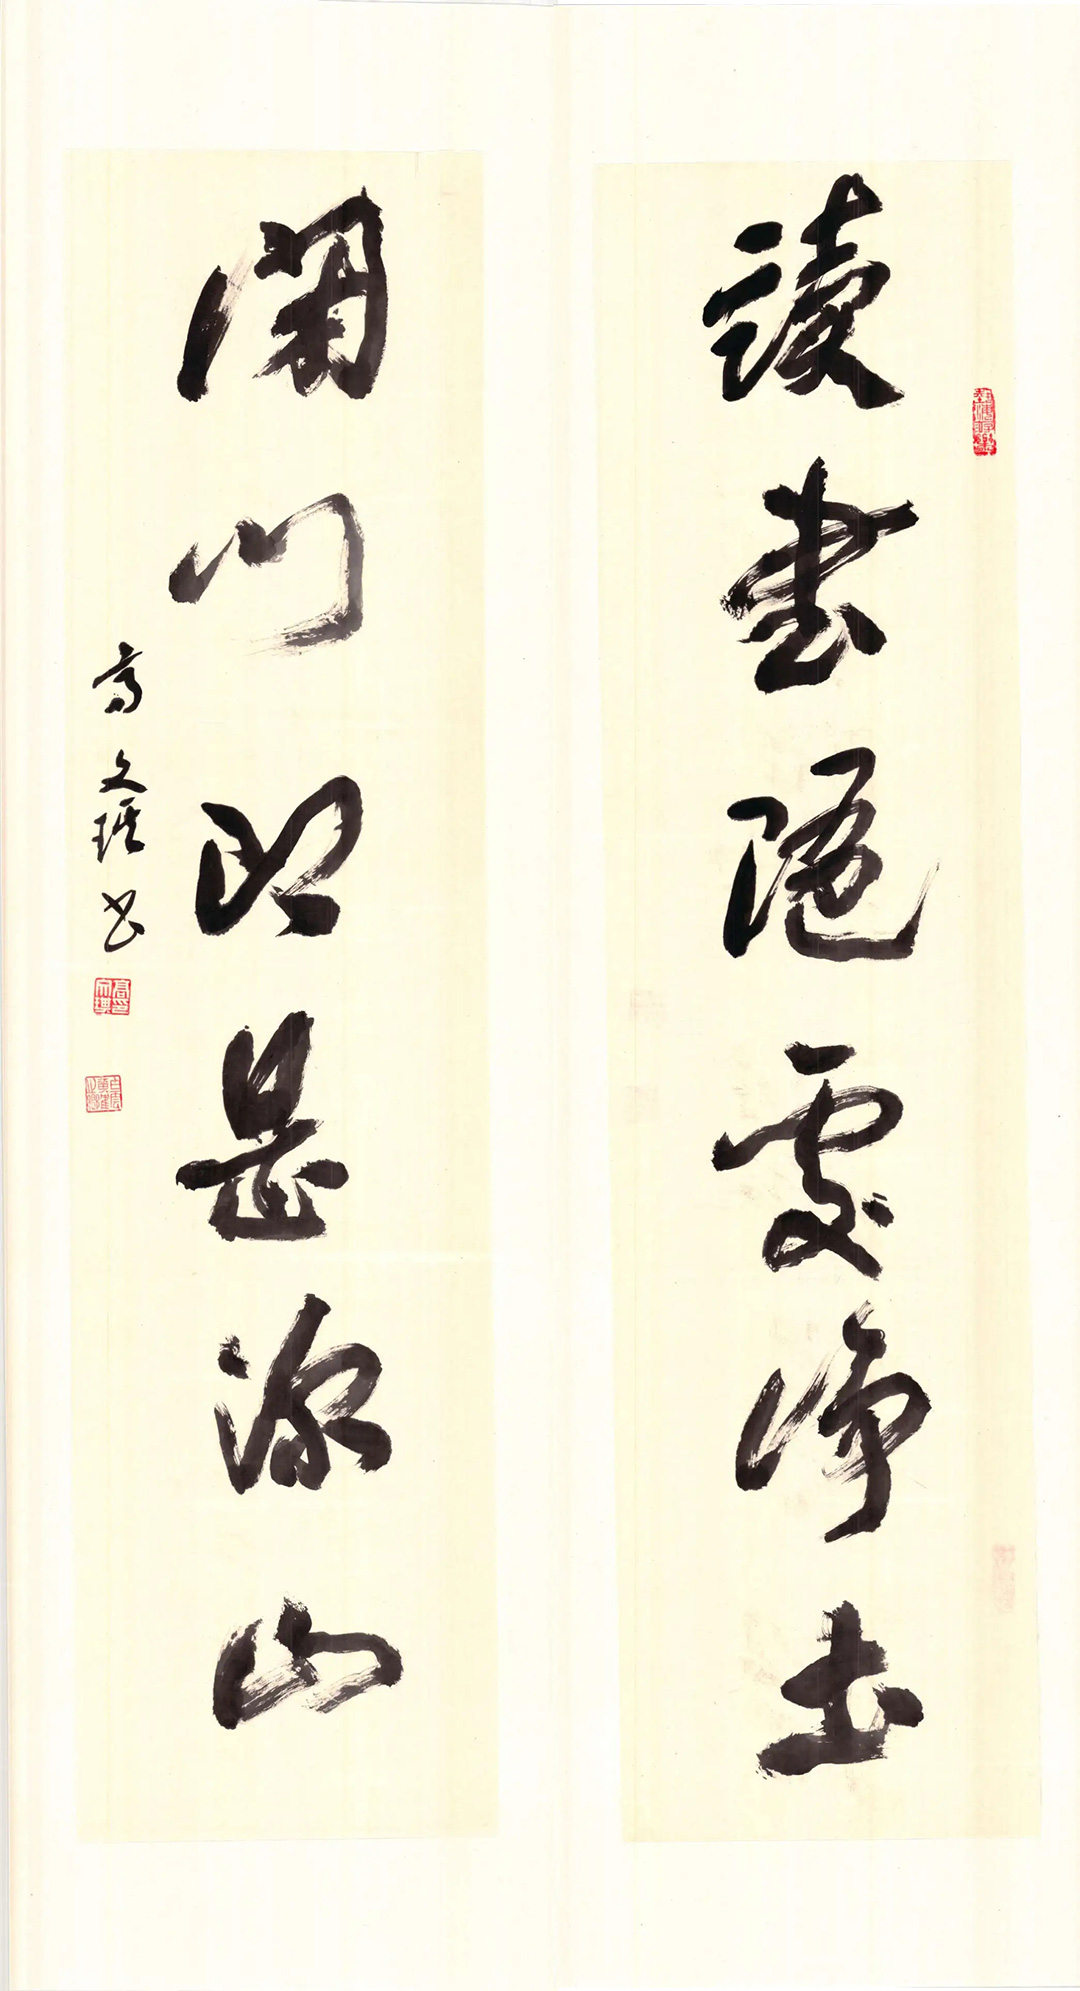 讀書隨處淨土
閉門即是深山
高文琪書